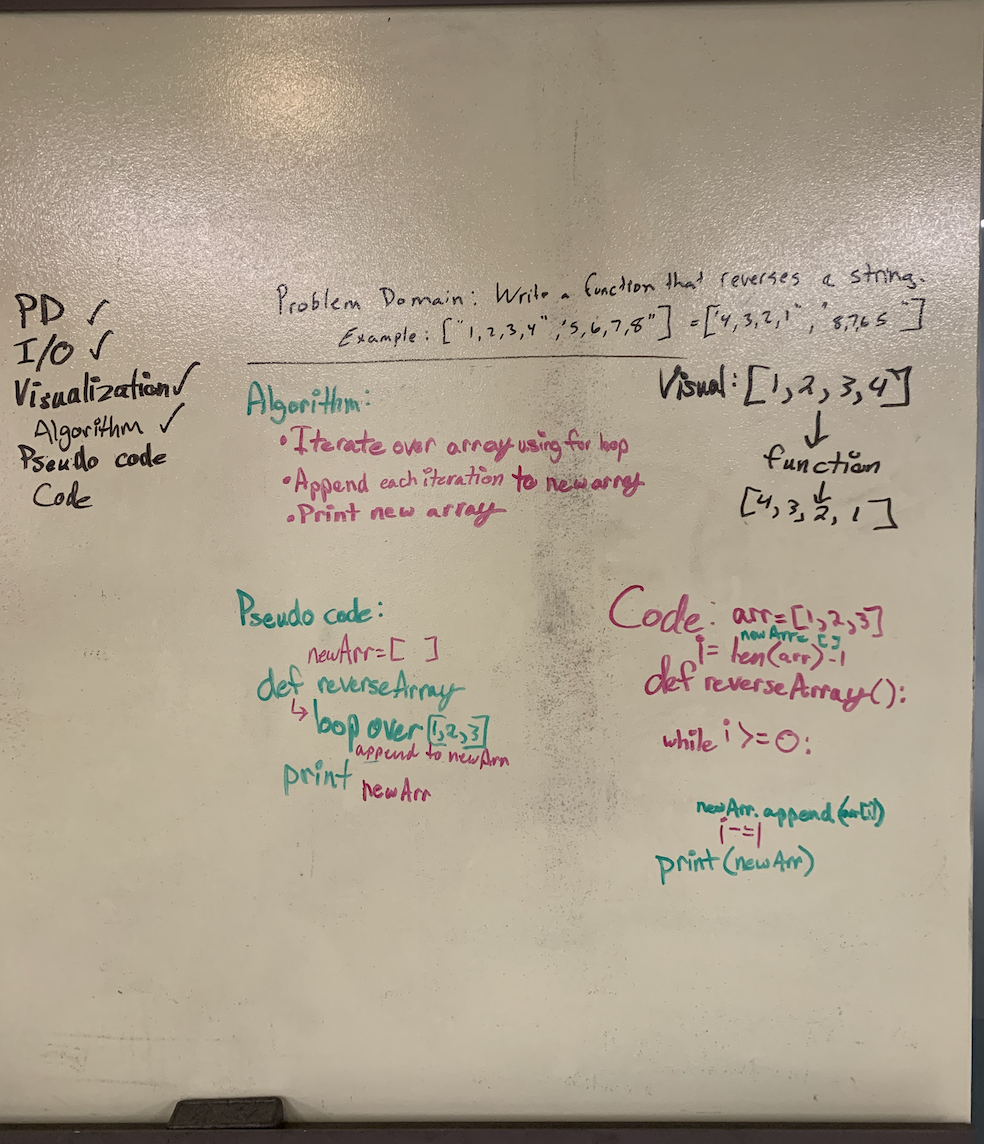 PD ✓
I/O ✓
Visualization ✓
Algorithm ✓
Pseudo code
Code
Problem Domain: Write a function that reverses a string.
Example: ["1,2,3,4", "5,6,7,8"] = ["4,3,2,1", "8,7,6 5"]
Algorithm:
• Iterate over array using for loop
• Append each iteration to new array
• Print new array
Visual: [1, 2, 3, 4]
↓
function
↓
[4, 3, 2, 1]
Pseudo code:
newArr = [ ]
def reverseArray
↳ loop over [1,2,3]
append to newArr
print newArr
Code: arr = [1, 2, 3]
newArr = [ ]
i = len(arr) - 1
def reverseArray():
while i >= 0:
newArr.append(arr[i])
i -= 1
print(newArr)